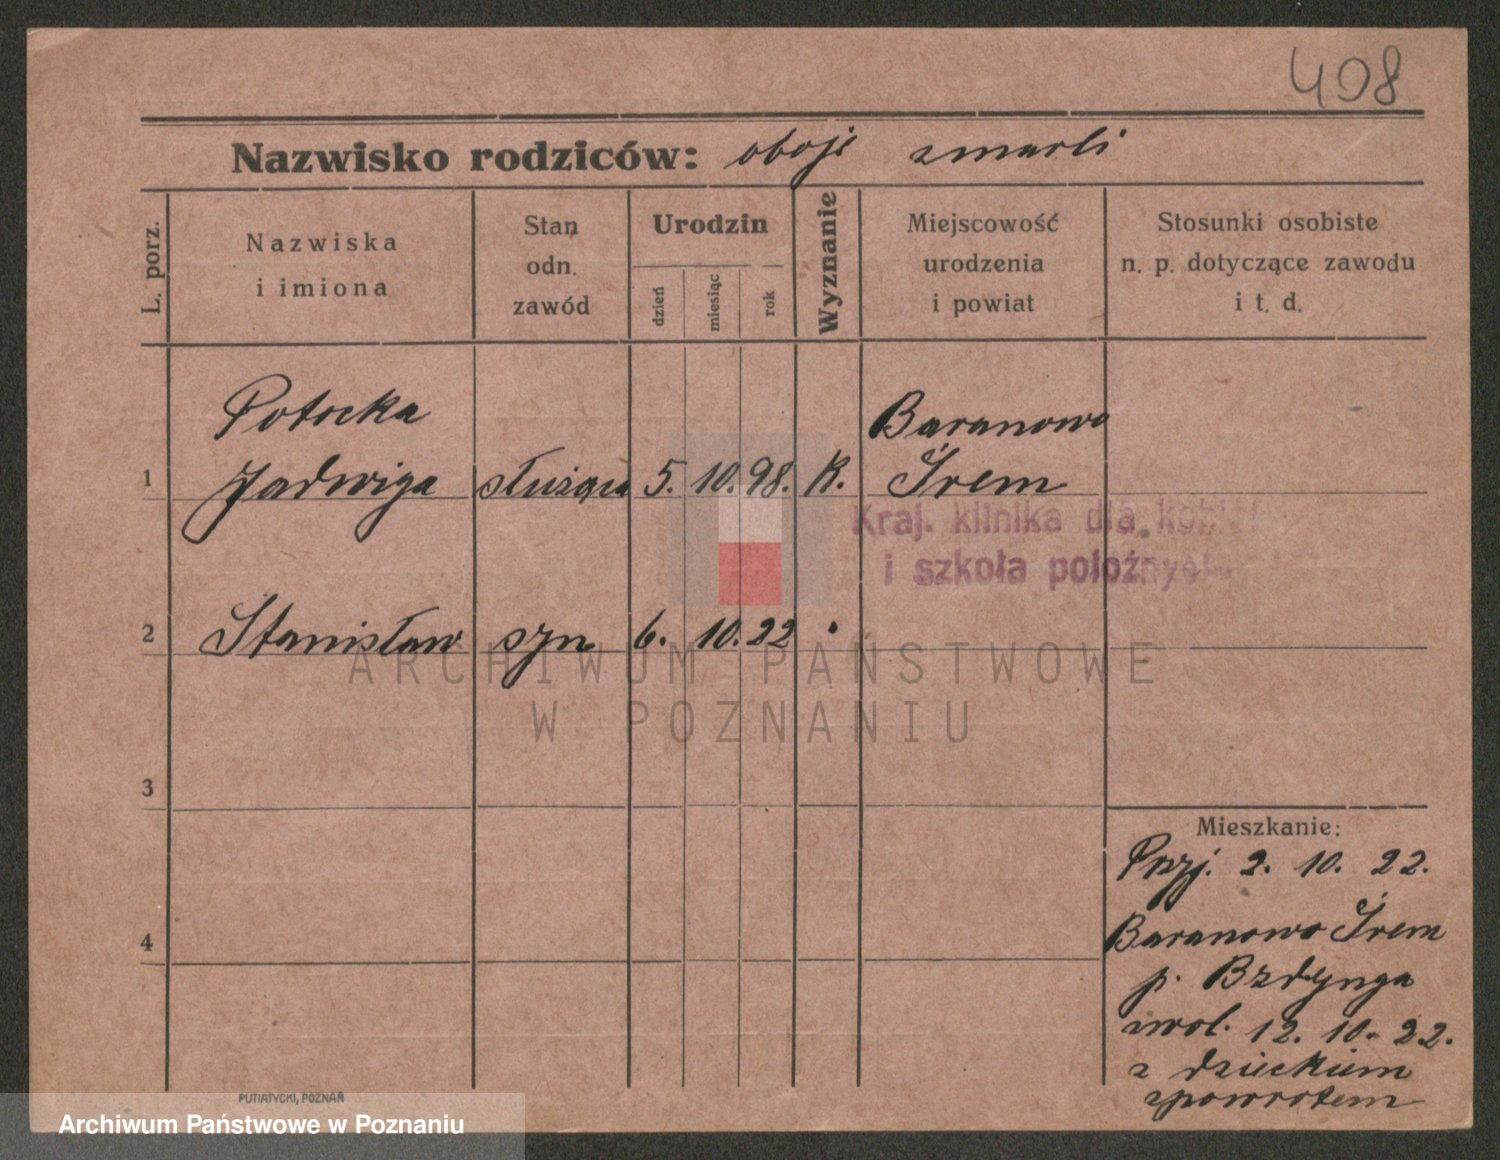 408
Nazwisko rodziców: oboje zmarli
L. porz.
Nazwiska
i imiona
Stan
odn.
zawód
Urodzin
dzień
miesiąc
rok
Wyznanie
Miejscowość
urodzenia
i powiat
Stosunki osobiste
n. p. dotyczące zawodu
i t. d.
Potocka Baranowo
1 Jadwiga służąca 5. 10. 98. K. Śrem
Kraj. klinika dla kobi
i szkoła położnych
2 Stanisław syn 6. 10. 22 .
ARCHIWUM PAŃSTWOWE
W POZNANIU
3
Mieszkanie:
Przj. 2. 10. 22.
4
Baranowo Śrem
p. Bzdynga
zwol. 12. 10. 22.
z dzieckiem
zpowrotem
PUTIATYCKI, POZNAŃ
Archiwum Państwowe w Poznaniu